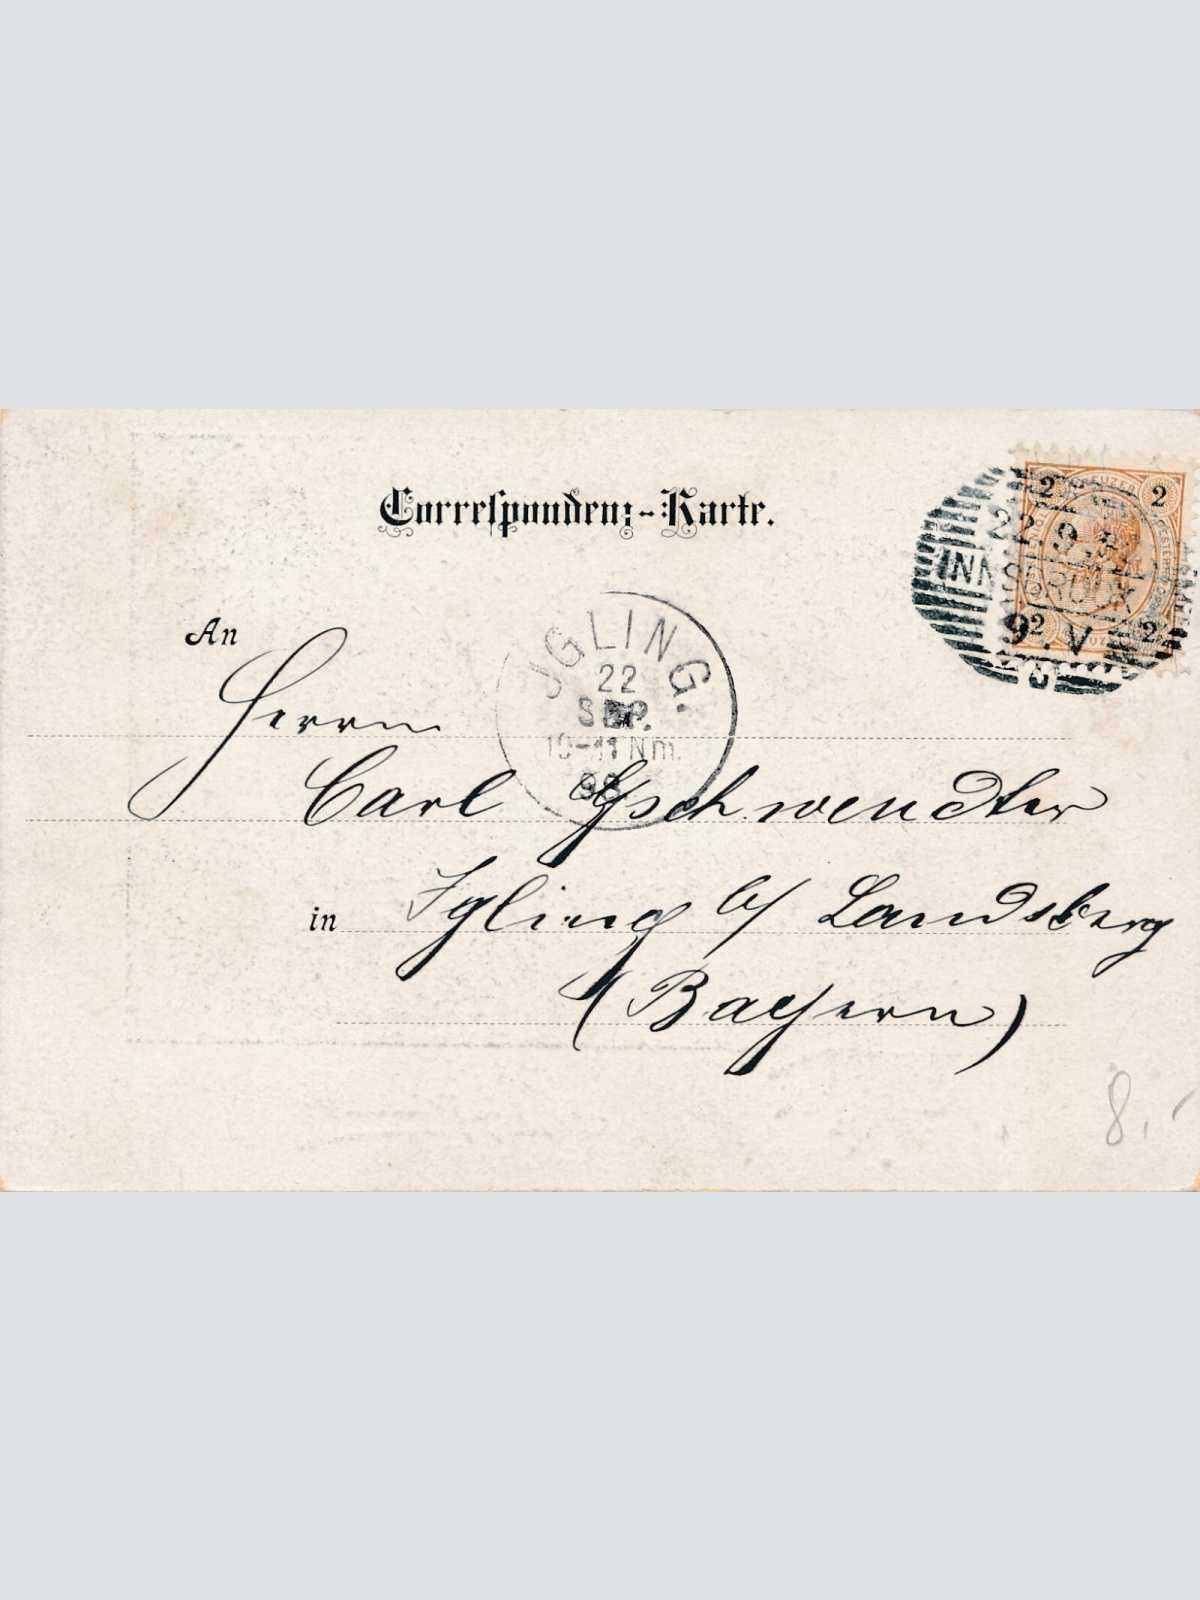 Correspondenz-Karte.
2 KREUZER 2
22.9.98
INNSBRUCK
92 . V 2
An
Herrn
JGLING.
22
SEP.
10-11 Nm.
98
Carl Gschwendter
in Igling b/ Landsberg
(Bayern)
8.-